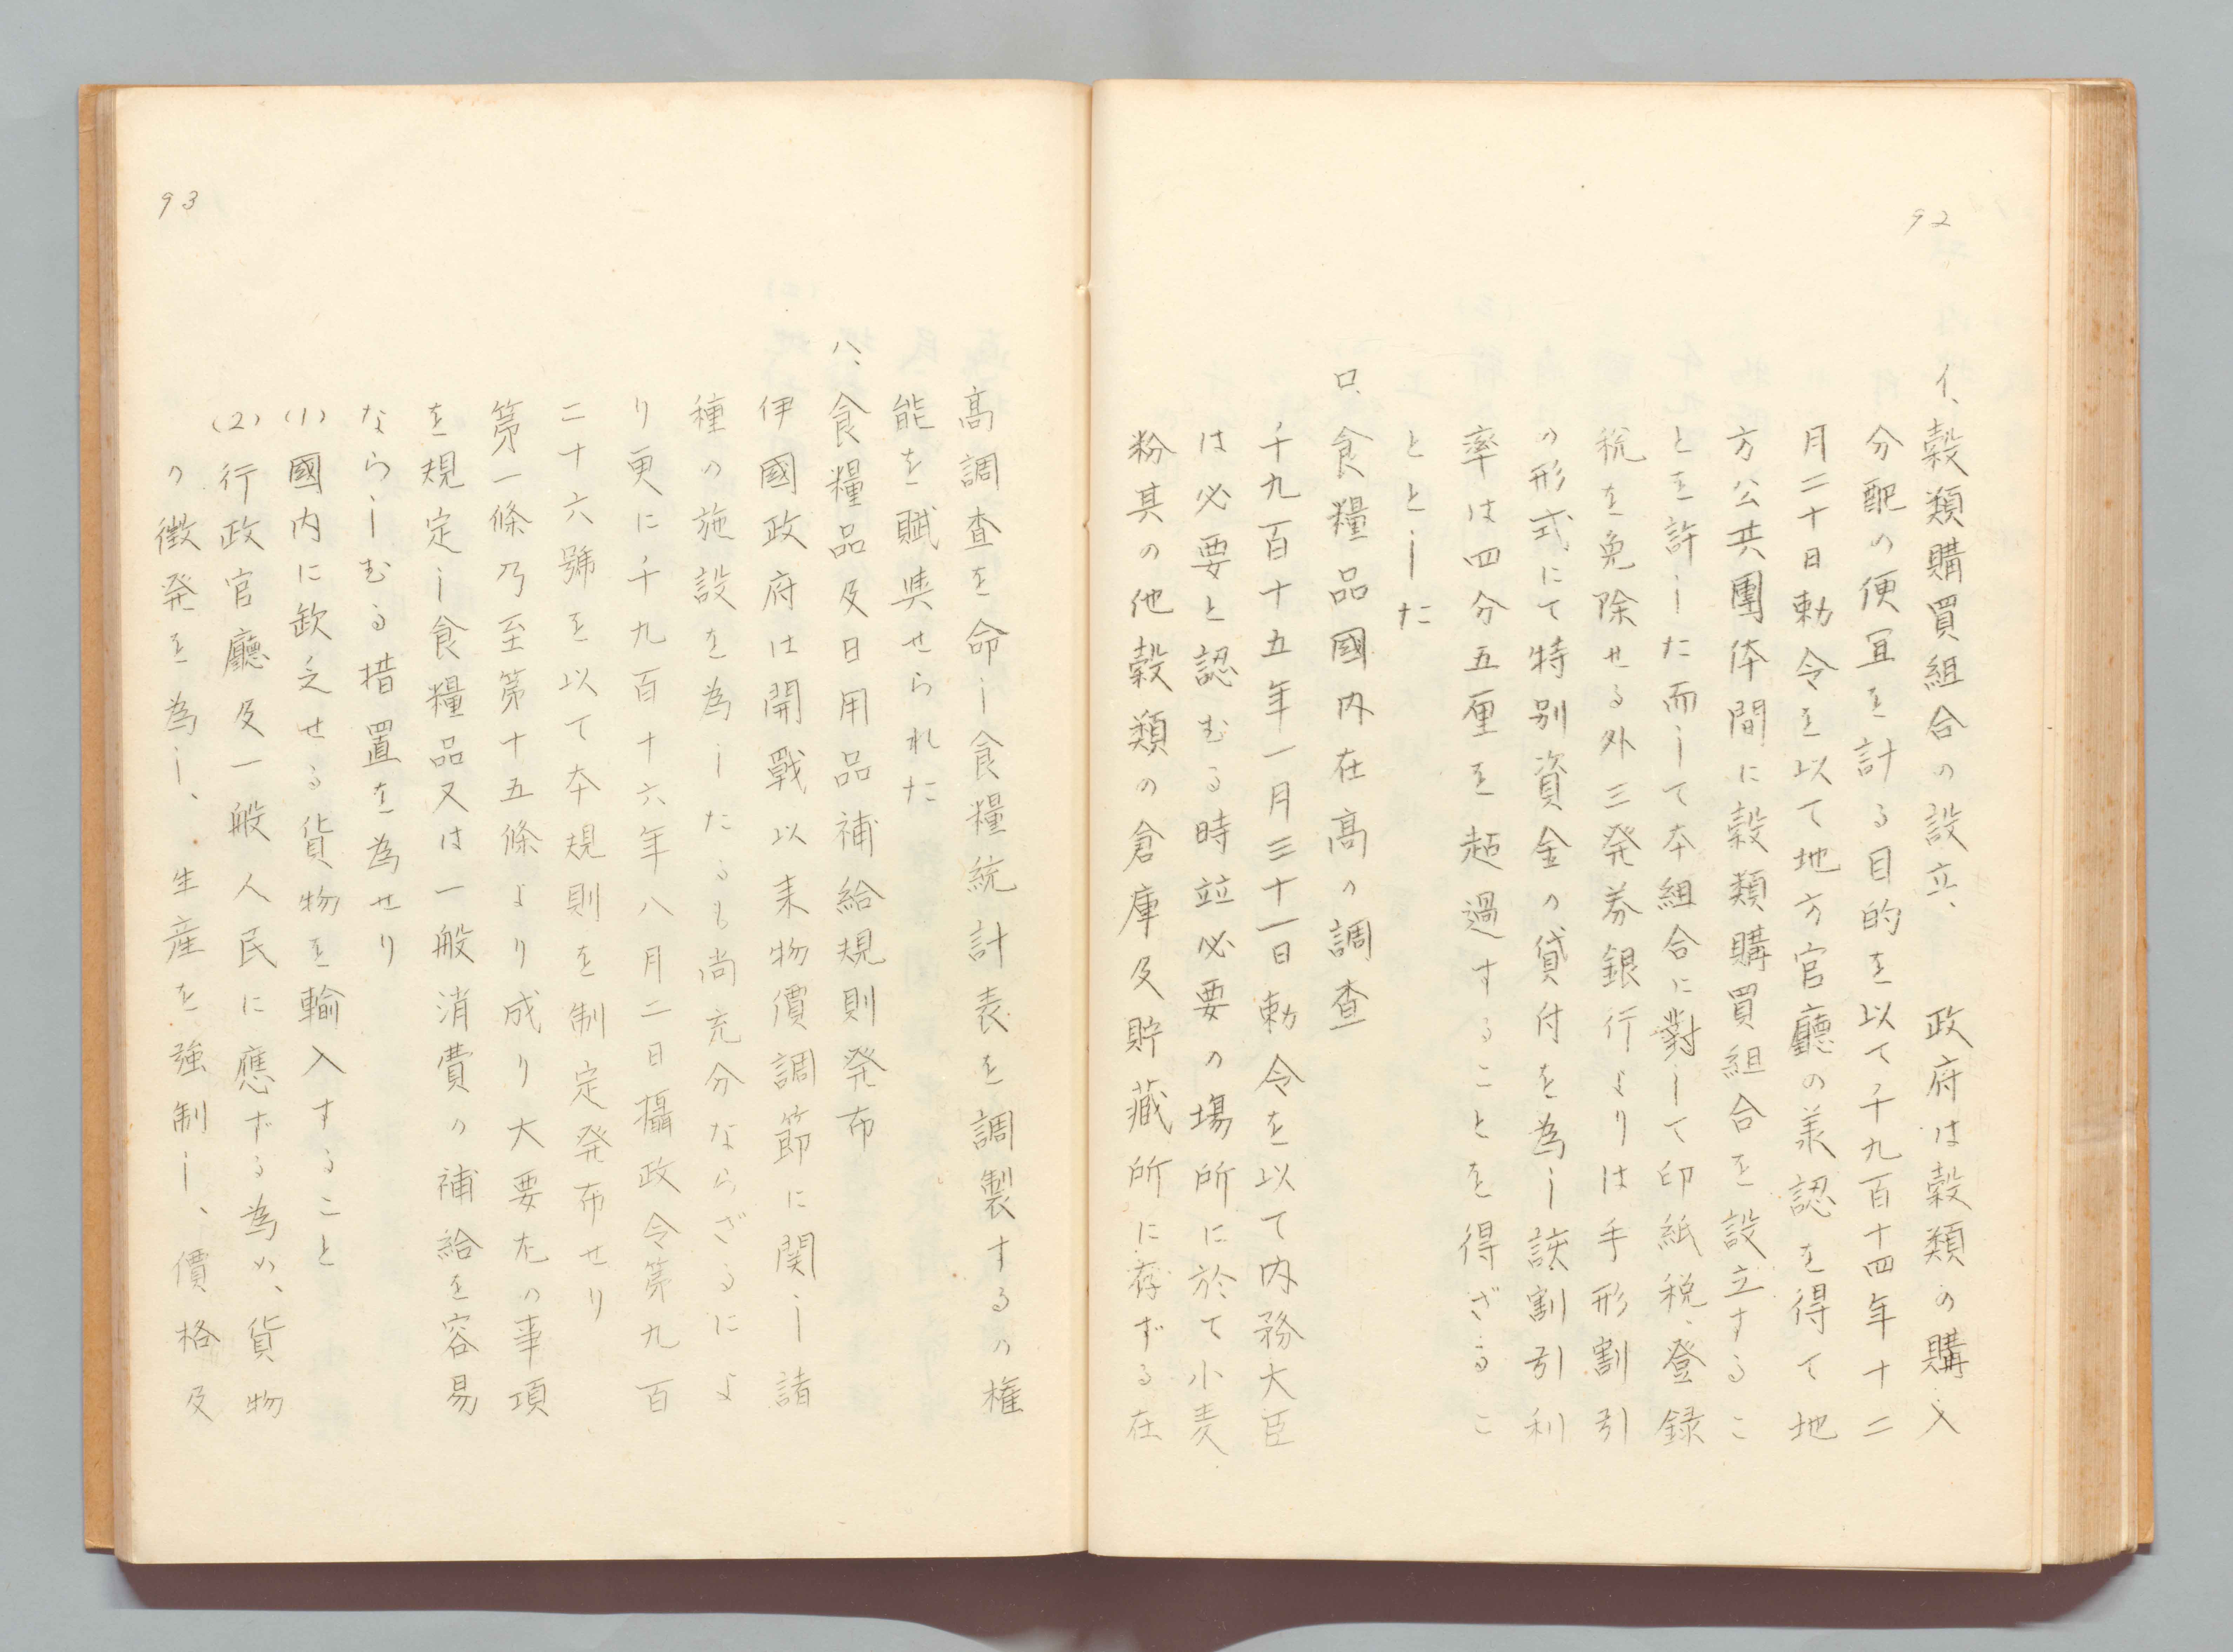 92
イ、穀類購買組合の設立、　政府は穀類の購入
分配の便宜を計る目的を以て千九百十四年十二
月二十日勅令を以て地方官廳の羕認を得て地
方公共團体間に穀類購買組合を設立するこ
とを許した而して本組合に對して印紙税、登録
税を免除せる外三発券銀行よりは手形割引
の形式にて特別資金の貸付を為し該割引利
率は四分五厘を超過することを得ざるこ
ととした
ロ、食糧品國内在高の調査
千九百十五年一月三十一日勅令を以て内務大臣
は必要と認むる時竝必要の場所に於て小麦
粉其の他穀類の倉庫及貯蔵所に存ずる在
93
高調査を命し食糧統計表を調製するの権
能を賦與せられた
ハ、食糧品及日用品補給規則発布
伊國政府は開戰以来物價調節に関し諸
種の施設を為したるも尚充分ならざるによ
り更に千九百十六年八月二日攝政令第九百
二十六號を以て本規則を制定発布せり
第一條乃至第十五條より成り大要左の事項
を規定し食糧品又は一般消費の補給を容易
ならしむる措置を為せり
(1)國内に欽乏せる貨物を輸入すること
(2)行政官廳及一般人民に應ずる為め、貨物
の徴発を為し、生産を強制し、價格及